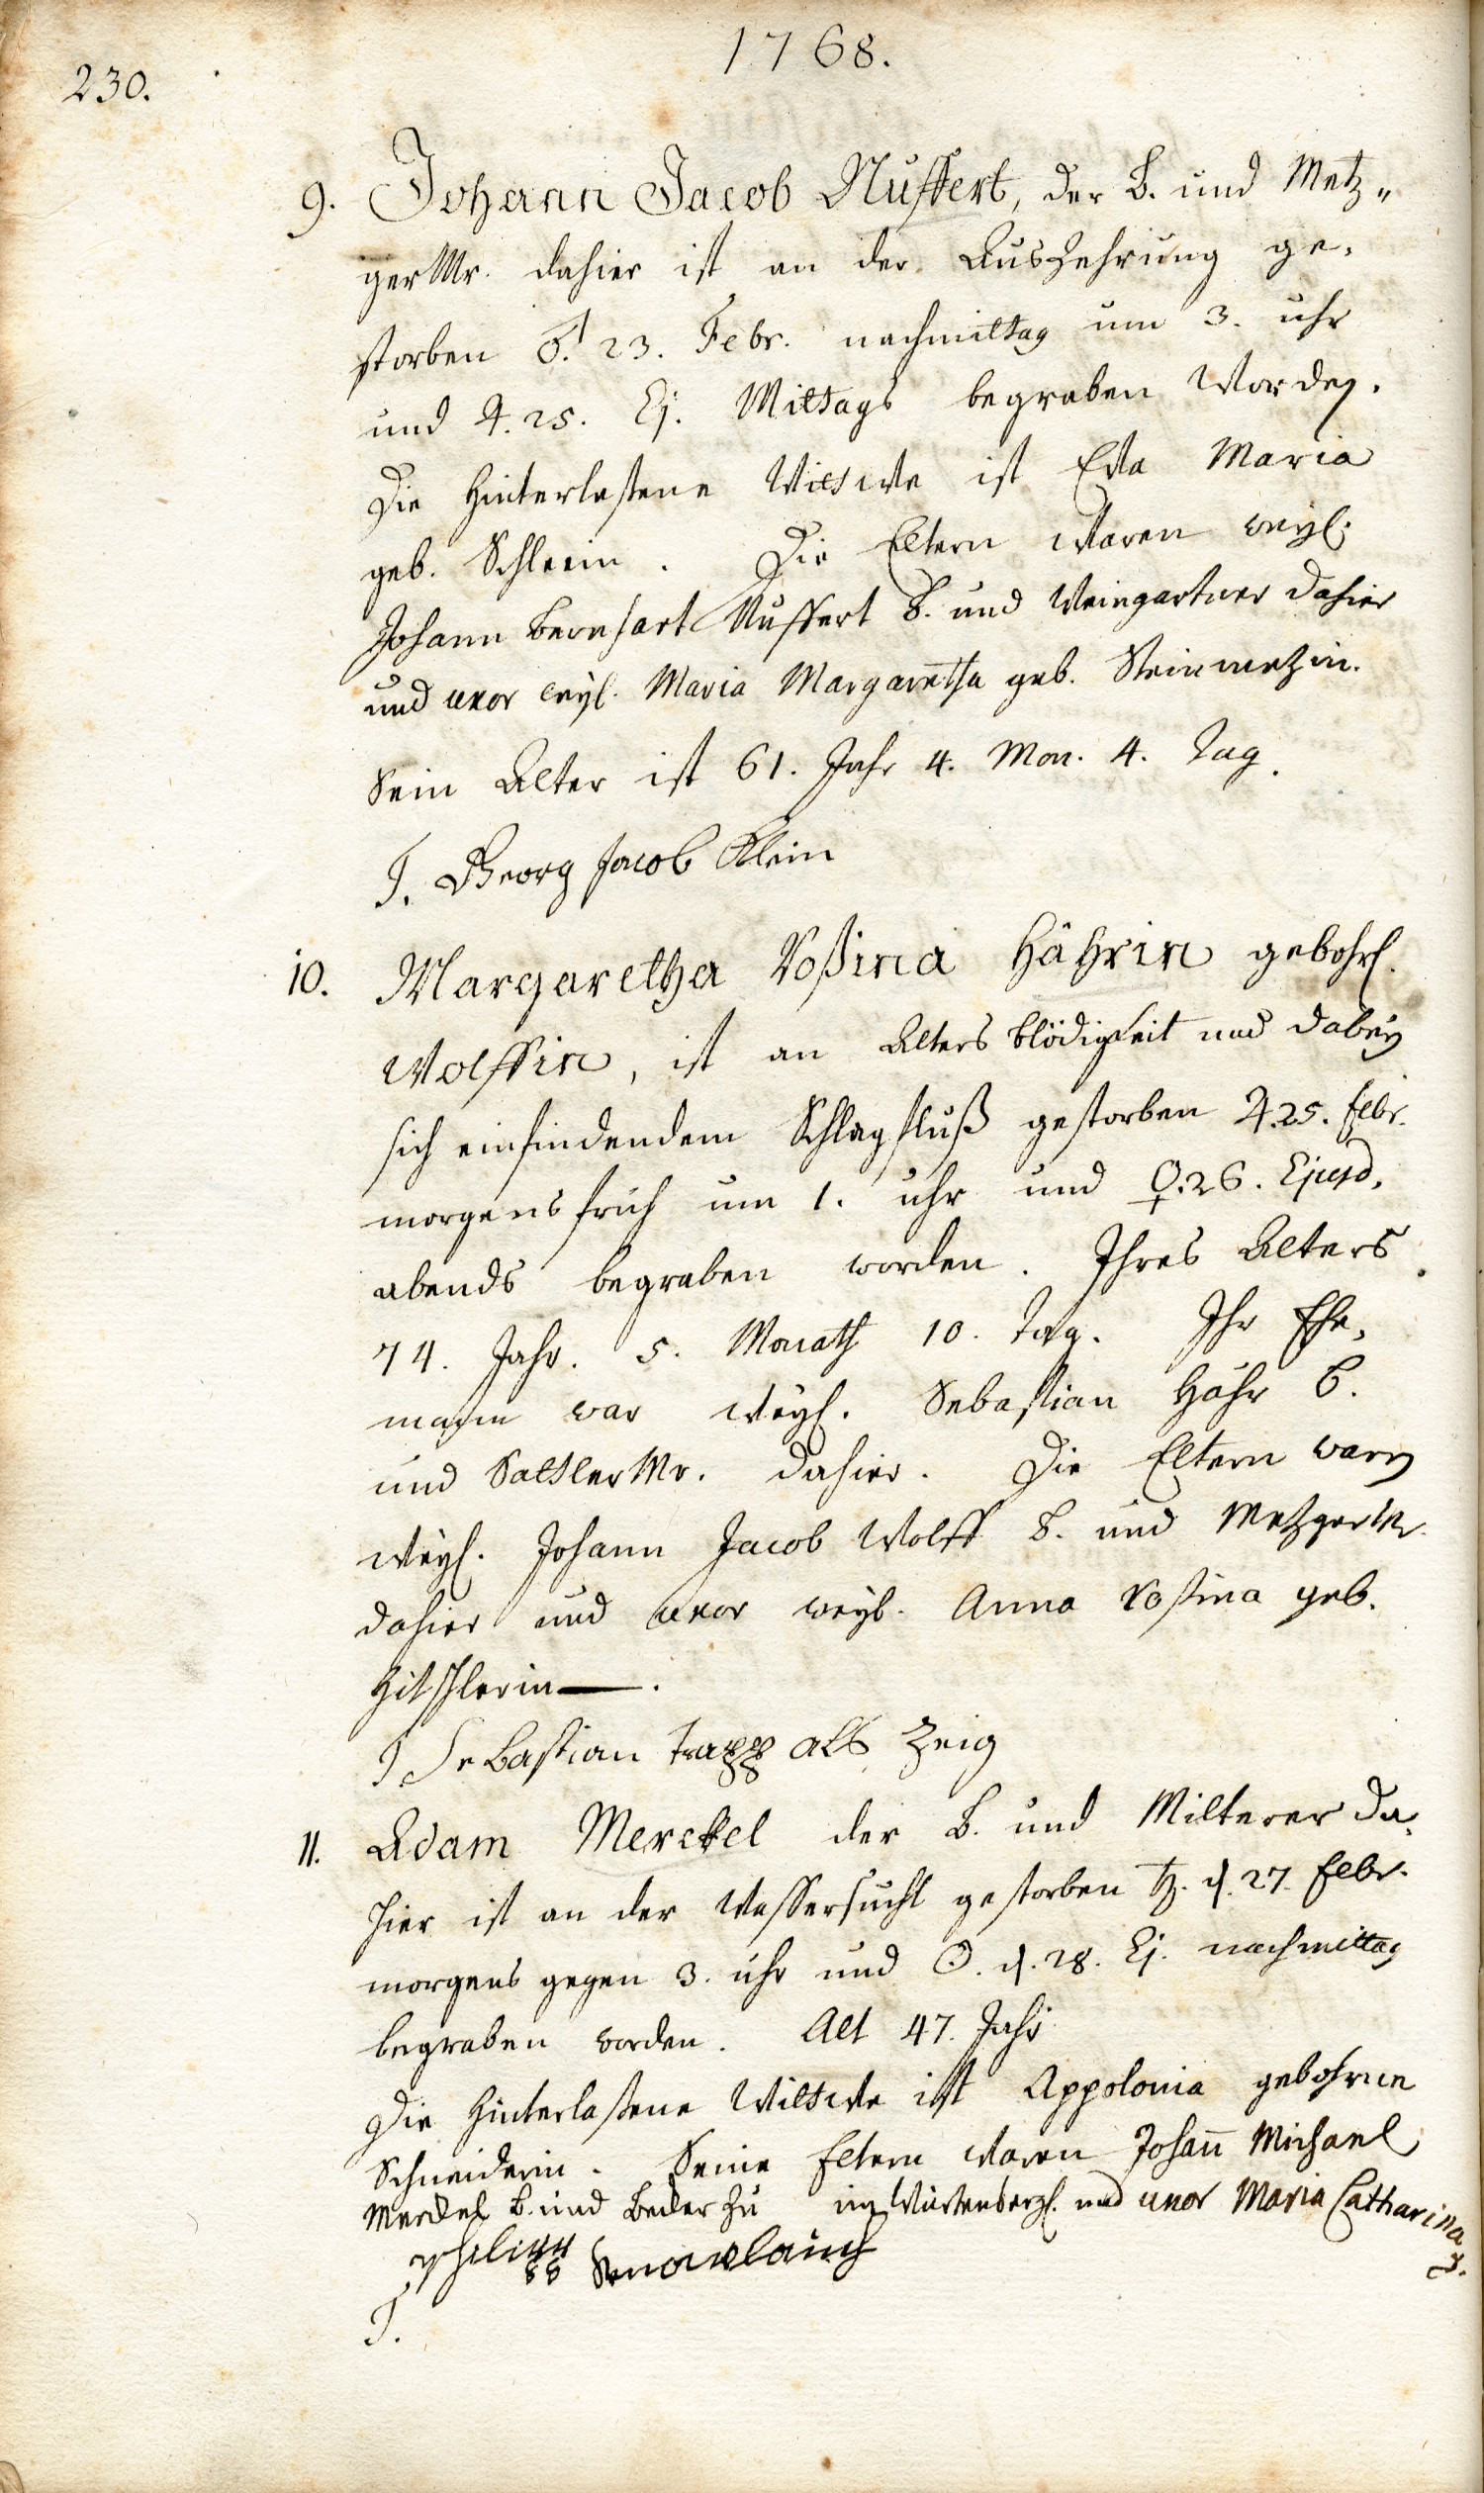 1768.
230.
9. Johann Jacob Nuffert, der B. und Metz„
gerMr. dahier ist an der Auszehrung ge„
storben ♂. 23. Febr. nachmittag um 3. uhr
und ♃. 25. Ej. Mittags begraben worden.
Die Hinterlaßene Wittwe ist Eva Maria
geb. Schleein. Die Eltern waren weyl.
Johann Bernhart Nuffert B. und Weingartner dahier
und uxor weyl. Maria Margaretha geb. Steinmetzin.
Sein Alter ist 61. Jahr 4. Mon. 4. Tag.
T. Georg Jacob Klein
10. Margaretha Roßina Hährin gebohrl.
Wolffin, ist an Alters blödigkeit und dabey
sich einfindendem Schlagfluß gestorben ♃. 25. Febr.
morgens früh um 1. uhr und ♀. 26. Ejusd.
abends begraben worden. Ihres Alters
74. Jahr. 5. Monath 10. Tag. Ihr Ehe„
mann war weyl. Sebastian Hähr B.
und SattlerMr. dahier. Die Eltern warn
weyl. Johann Jacob Wolff B. und MetzgerMr.
dahier und uxor weyl. Anna Roßina geb.
Hitschlerin —.
T Sebastian Trapp als Zeig
11. Adam Merckel der B. und Milterer da„
hier ist an der Wassersucht gestorben ♄. d. 27. Febr.
morgens gegen 3. uhr und ☉. d. 28. Ej. nachmittag
begraben worden. Alt 47. Jahr
Die Hinterlaßene Wittwe ist Appolonia gebohrne
Schneiderin. Seine Eltern waren Johan̄ Michael
Merckel B. und Beder zu im Würtenbergl. und uxor Maria Catharina
g.
Philipp Knoblauch
T.